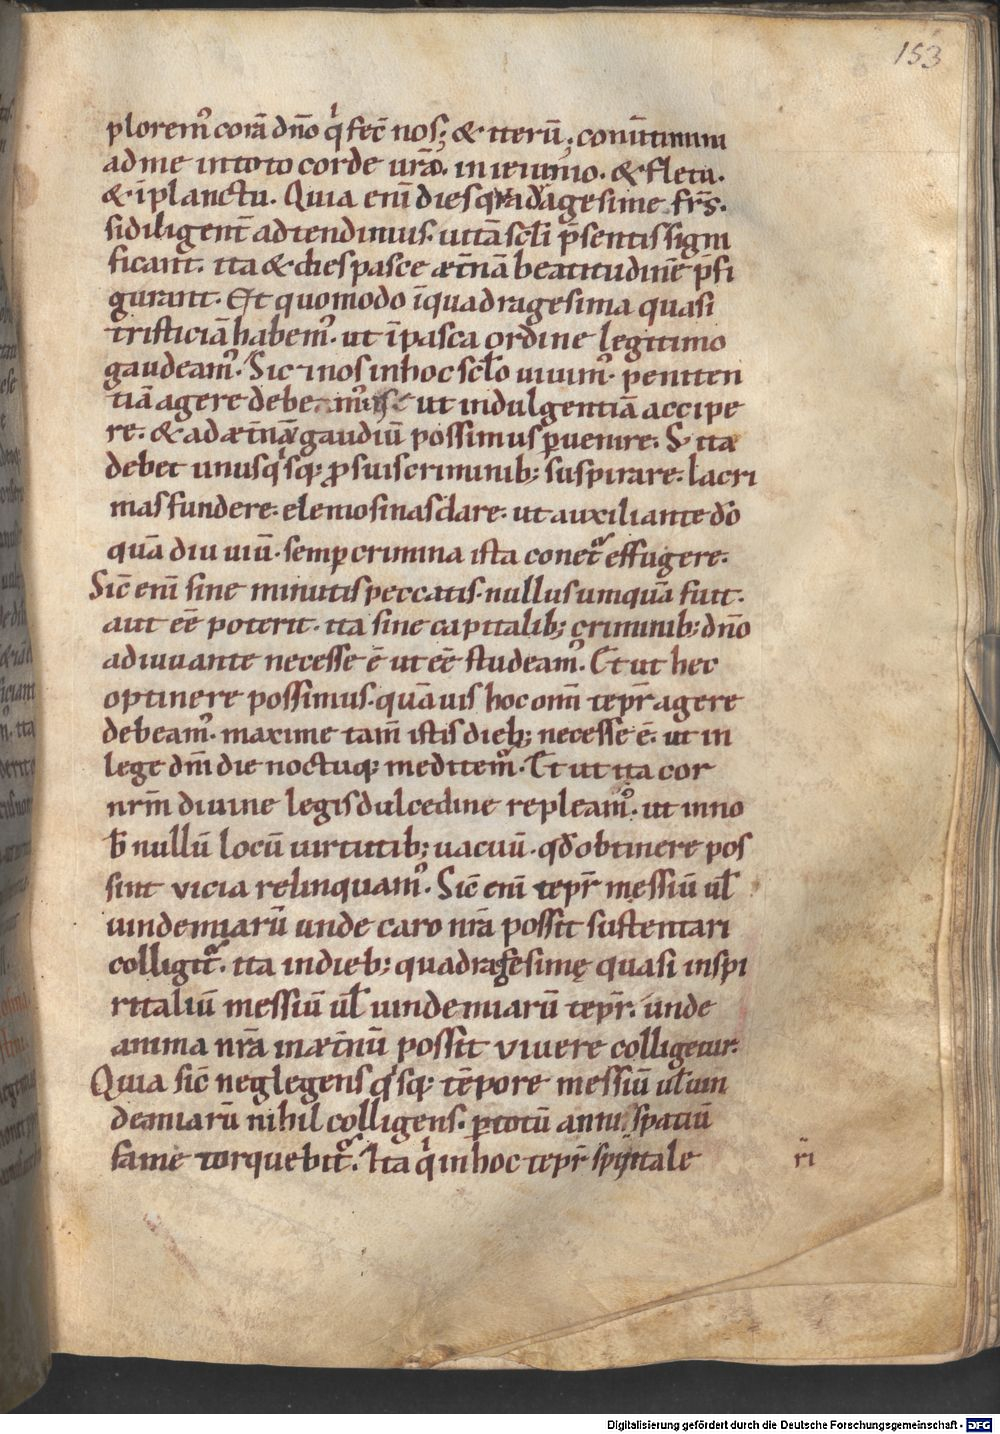 153
ploremꝰ corā dn̄o q̇ fec̄ nos; & iterū; conu̅timini
ad me in toto corde ur̄o. in ieiunio. & fletu.
& ī planctu. Quia enī dies quadragesime fr̄s.
si diligent̄ adtendimus. uitā scl̄i p̄sentis signi
ficant. ita & dies pasce æt̄nā beatitudinē p̄fi
gurant. Et quomodo ī quadragesima quasi
tristiciā habemꝰ. ut ī pasca ordine legitimo
gaudeamꝰ. Sic & nos in hoc scl̄o uiuimꝰ. peniten
tiā agere debemꝰ ut indulgentiā accipe
re. & ad æt̄nā gaudiū possimus ꝑuenire. S& ita
debet unusq̇sq; ꝓ suis criminib; suspirare. lacri
mas fundere. elemosinas dare. ut auxiliante dō
quādiu uiū. semꝑ crimina ista conet᷑ effugere.
Sic̄ enī sine minutis peccatis. nullus umquā fuit.
aut eē poterit. ita sine capitalib; criminib; dn̄o
adiuuante necesse ē ut eē studeamꝰ. Et ut hec
optinere possimus. quāuis hoc omī tēpr̄ agere
debeamꝰ. maxime tam̄ istis dieb; necesse ē. ut in
lege dn̄i die noctuq; meditemꝰ. Et ut ita cor
nr̄m diuine legis dulcedine repleamꝰ. ut in no
b̄ nullū locū uirtutib; uacuū. qd̄ obtinere pos
sint vicia relinquamꝰ. Sic̄ enī tēpr̄ messiū ul̄
uindemiarū unde caro nr̄a possit sustentari
colligit᷑. ita in dieb; quadragesimę quasi in spi
ritaliū messiū ul̄ uindemiarū tēpr̄. unde
anima nr̄a in æt̄nū possit vivere colligetur.
Quia sic̄ neglegens q̇sq; tēpore messiū ul̄ uin
demiarū nihil colligens. ꝑ totū anni spatiū
fame torquebit᷑. Ita q̇ in hoc tēpr̄ spiritale
ri
Digitalisierung gefördert durch die Deutsche Forschungsgemeinschaft - DFG